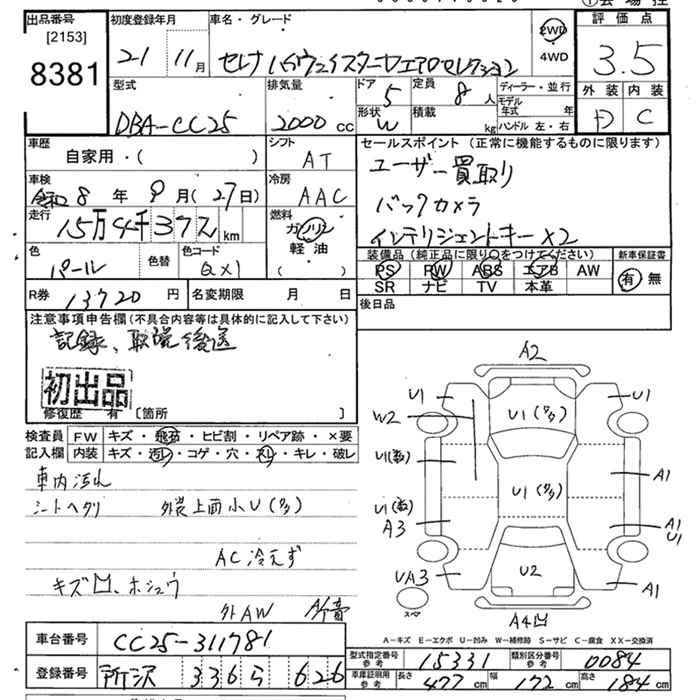 出品番号 [2153] 8381
初度登録年月 21 11月
車名・グレード セレナ ハイウェイスター Vエアロセレクション
2WD 4WD
評価点 3.5
外装 内装
D C
型式 DBA-CC25
排気量 2000 cc
ドア 5 定員 8 人
形状 W 積載 kg
ディーラー・並行
モデル年式 年
ハンドル 左・右
車歴 自家用・( )
シフト AT
セールスポイント (正常に機能するものに限ります)
ユーザー買取り
バックカメラ
インテリジェントキー×2
車検 令和 8 年 9 月 (27日)
冷房 AAC
走行 15万4千372 km
燃料 ガソリン 軽油 ( )
色 パール 色替 色コード QX1
装備品 (純正品に限り○をつけてください) 新車保証書
PS PW ABS エアB AW 有 無
SR ナビ TV 本革
R券 13720 円 名変期限 月 日
後日品
注意事項申告欄 (不具合内容等は具体的に記入して下さい)
記録、取説後送
初出品
修復歴 有 [箇所 ]
検査員 FW キズ・飛石・ヒビ割・リペア跡・×要
記入欄 内装 キズ・汚レ・コゲ・穴・スレ・キレ・破レ
車内汚れ
シートヘタリ 外装上面小U(多)
AC冷えず
キズ凹、ホシュウ
外AW
A2
U1 U1
W2 U1(多)
U1
A1
U1(多)
U1
A3 A1
U1
UA3 U2 A1
スペア
A4凹
A-キズ E-エクボ U-凹み W-補修跡 S-サビ C-腐食 XX-交換済
車台番号 CC25-311781
型式指定番号 参考 15331 類別区分番号 参考 0084
登録番号 所沢 336 ら 626
車庫証明用 参考 長さ 477 cm 幅 172 cm 高さ 184 cm